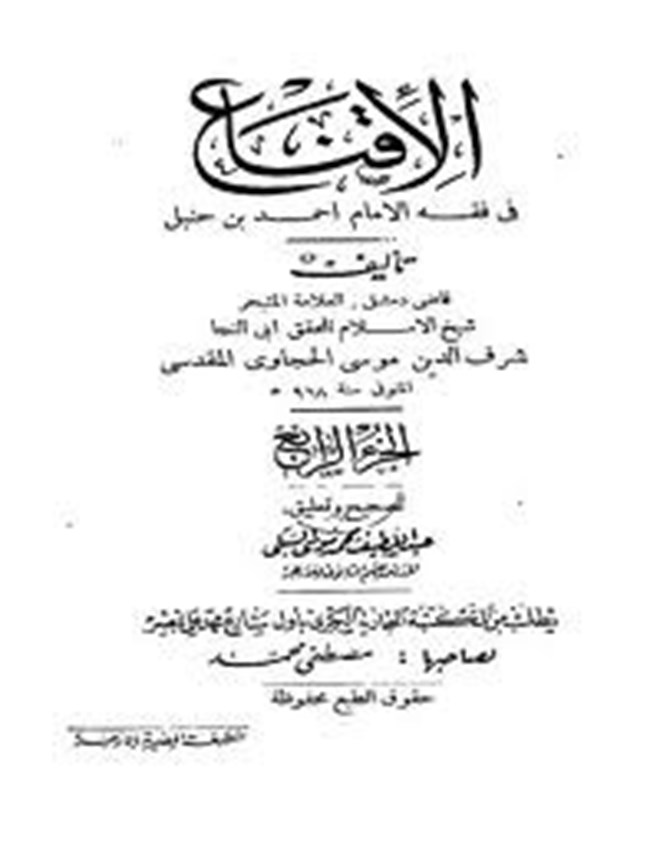 الإقناع
فى فقه الامام احمد بن حنبل
تأليف
قاضى دمشق ، العلامة المتبحر
شيخ الاسلام المحقق ابى النجا
شرف الدين موسى الحجاوى المقدسى
المتوفى سنة ٩٦٨ ه
الجزء الرابع
تصحيح وتعليق
عبد اللطيف محمد موسى السبكى
يطلب من المكتبة التجارية الكبرى بأول شارع محمد على بمصر
لصاحبها : مصطفى محمد
حقوق الطبع محفوظة